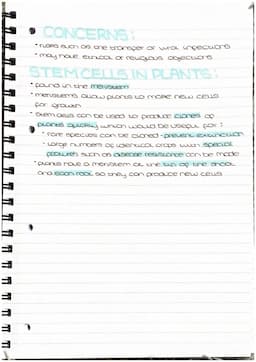 CONCERNS:
• risks such as the transfer of viral infections
• may have ethical or religious objections
STEM CELLS IN PLANTS:
• found in the meristem
• meristems allow plants to make new cells
for growth
• stem cells can be used to produce clones of
plants quickly which would be useful for:
• rare species can be cloned - prevent extinction
• large numbers of identical crops with special
features such as disease resistance can be made
• plants have a meristem at the tip of the shoot
and each root so they can produce new cells